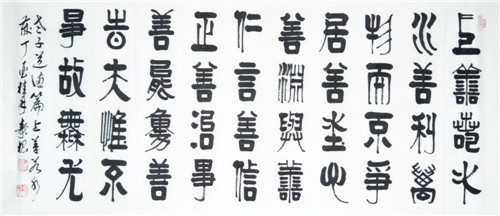 上善若水
水善利萬
物而不爭
居善地心
善淵與善
仁言善信
正善治事
善能動善
時夫惟不
爭故無尤
老子道德篇上善若水
歲丁亥桂月